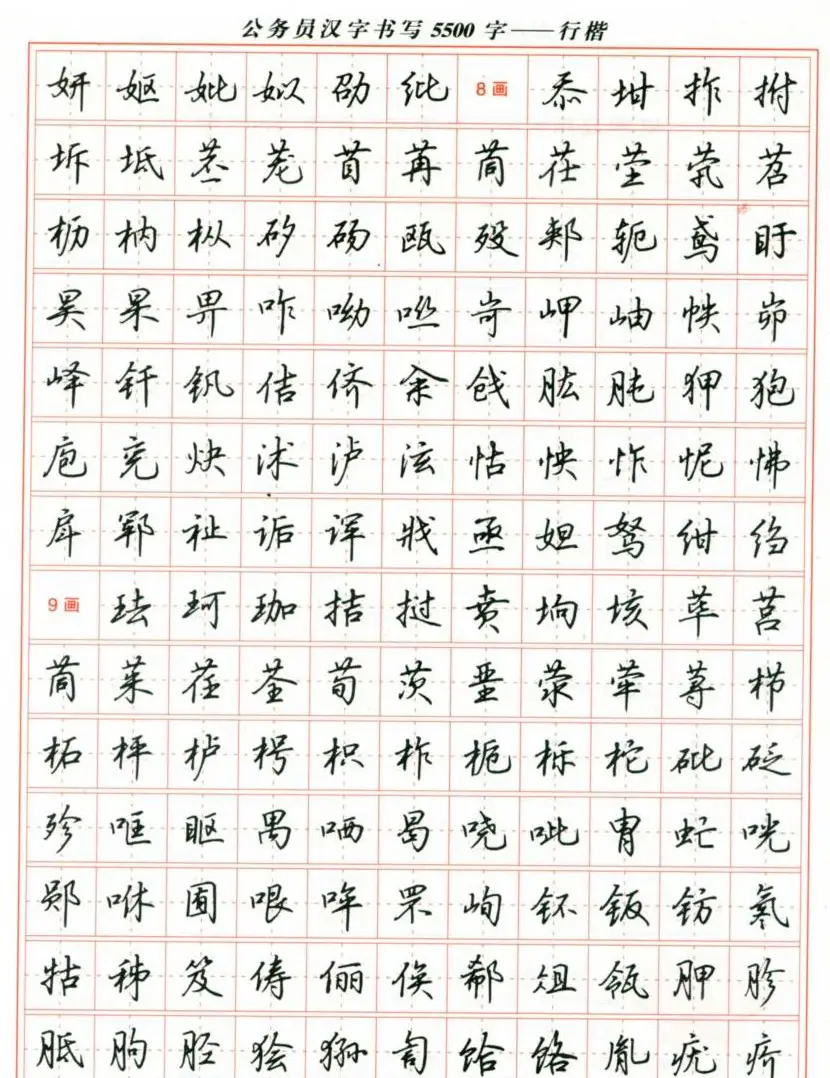 公务员汉字书写5500字——行楷
妍 妪 妣 姒 劭 纰 8画 忝 坩 拃 拊
坼 坻 苤 茏 苜 苒 苘 茌 茔 茕 苕
枥 枘 枞 矽 砀 瓯 殁 郏 轭 鸢 盱
昊 杲 畀 咋 呦 咝 岢 岬 岫 帙 峁
峄 钎 钒 佶 侪 籴 戗 肱 肫 狎 狍
庖 兖 炔 沭 泸 泫 怙 怏 怍 怩 怫
戽 郓 祉 诟 诨 戕 亟 妲 驽 绀 绉
9画 珐 珂 珈 拮 挝 贲 垧 垓 荜 莒
茼 茱 荏 荃 荀 茨 垩 荥 荦 荨 栉
柘 枰 栌 枵 枳 柞 栀 栎 柁 砒 砭
殄 哐 眍 禺 哂 曷 哓 呲 胄 虻 咣
郧 咻 囿 哏 哞 罘 峋 钚 钣 钫 氡
牯 秭 笈 俦 俪 俟 郗 俎 瓴 胛 胗
胝 朐 胫 狯 狲 訇 饴 饹 胤 疣 疥